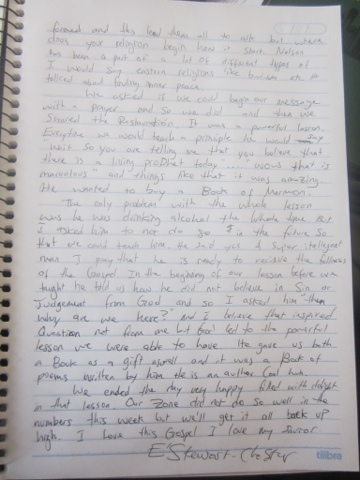 formed and this lead them all to ask but where
does your religion begin how it start. Nelson
has been a part of a lot of different types of
I would say eastern religions like budism etc. He
talked about finding inner peace.
We asked if we could begin our message
with a prayer and so we did and then we
Shared the Restoration. It was a powerful lesson.
Everytime we would teach a principle he would say
"wait so you are telling me that you believe that
there is a living prophet today"..... "wow that is
marvelous" and things like that it was amazing
He wanted to buy a Book of Mormon.
The only problem with the whole lesson
was he was drinking alcohol the whole time. But
I asked him to not do so in the future so
that we could teach him. He said yes. A super intelegent
man I pray that he is ready to recieve the fullness
of the Gospel. In the begining of our lesson before we
taught he told us how he did not believe in Sin or
Judgement from God and so I asked him "then
why are we here?" and I believe that inspired
Question not from me but God led to the powerful
lesson we were able to have. He gave us both
a Book as a gift aswell and it was a Book of
poems written by him. He is an author Cool huh.
We ended the day very happy filled with delight
in that lesson. Our Zone did not do so well in the
numbers this week but we'll get it all back up
high. I love this Gospel I love my Savior
tilibra